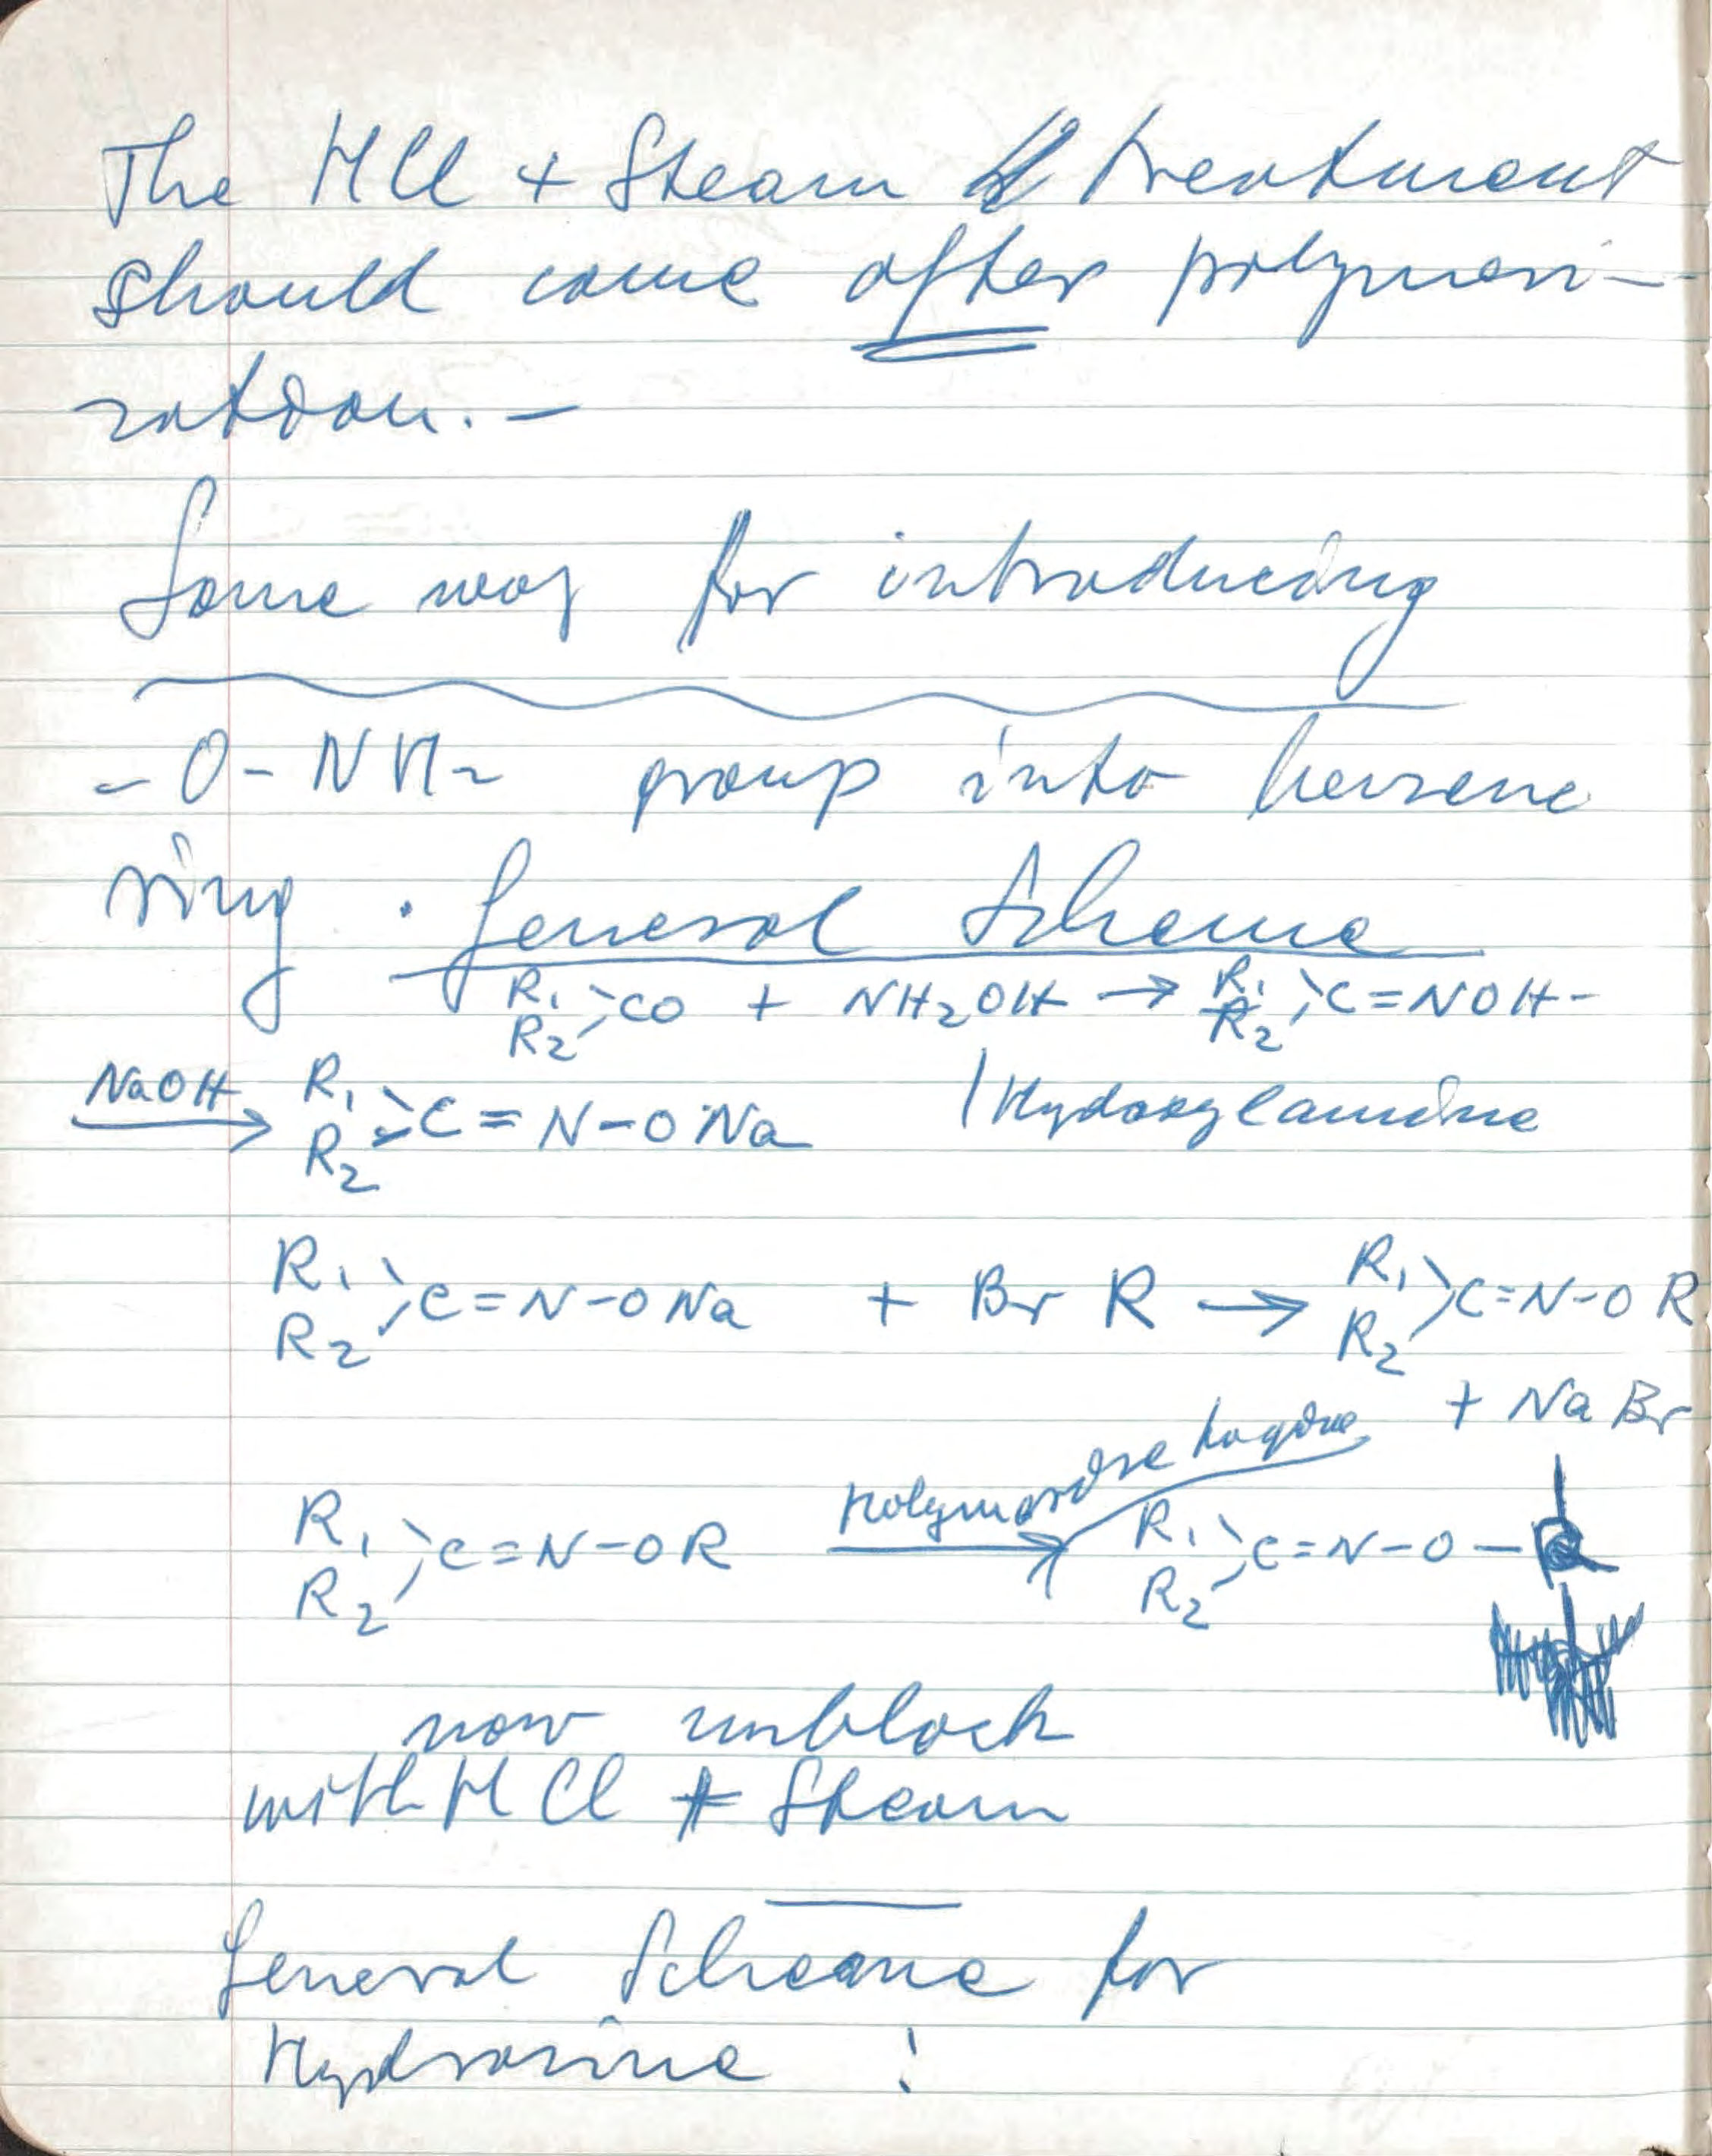 The HCl + Steam treatment
should come after polymeri-
zation. —
Same way for introducing
- O - NH2 group into benzene
ring . General Scheme
R1 R2 >CO + NH2OH → R1 R2 >C=NOH -
NaOH → R1 R2 >C=N-ONa /Hydroxylamine
R1 R2 >C=N-ONa + Br R → R1 R2 >C=N-OR
+ NaBr
R1 R2 >C=N-OR → R1 R2 >C=N-O-R
now unblock
with HCl + Steam
General Scheme for
Hydrazine :